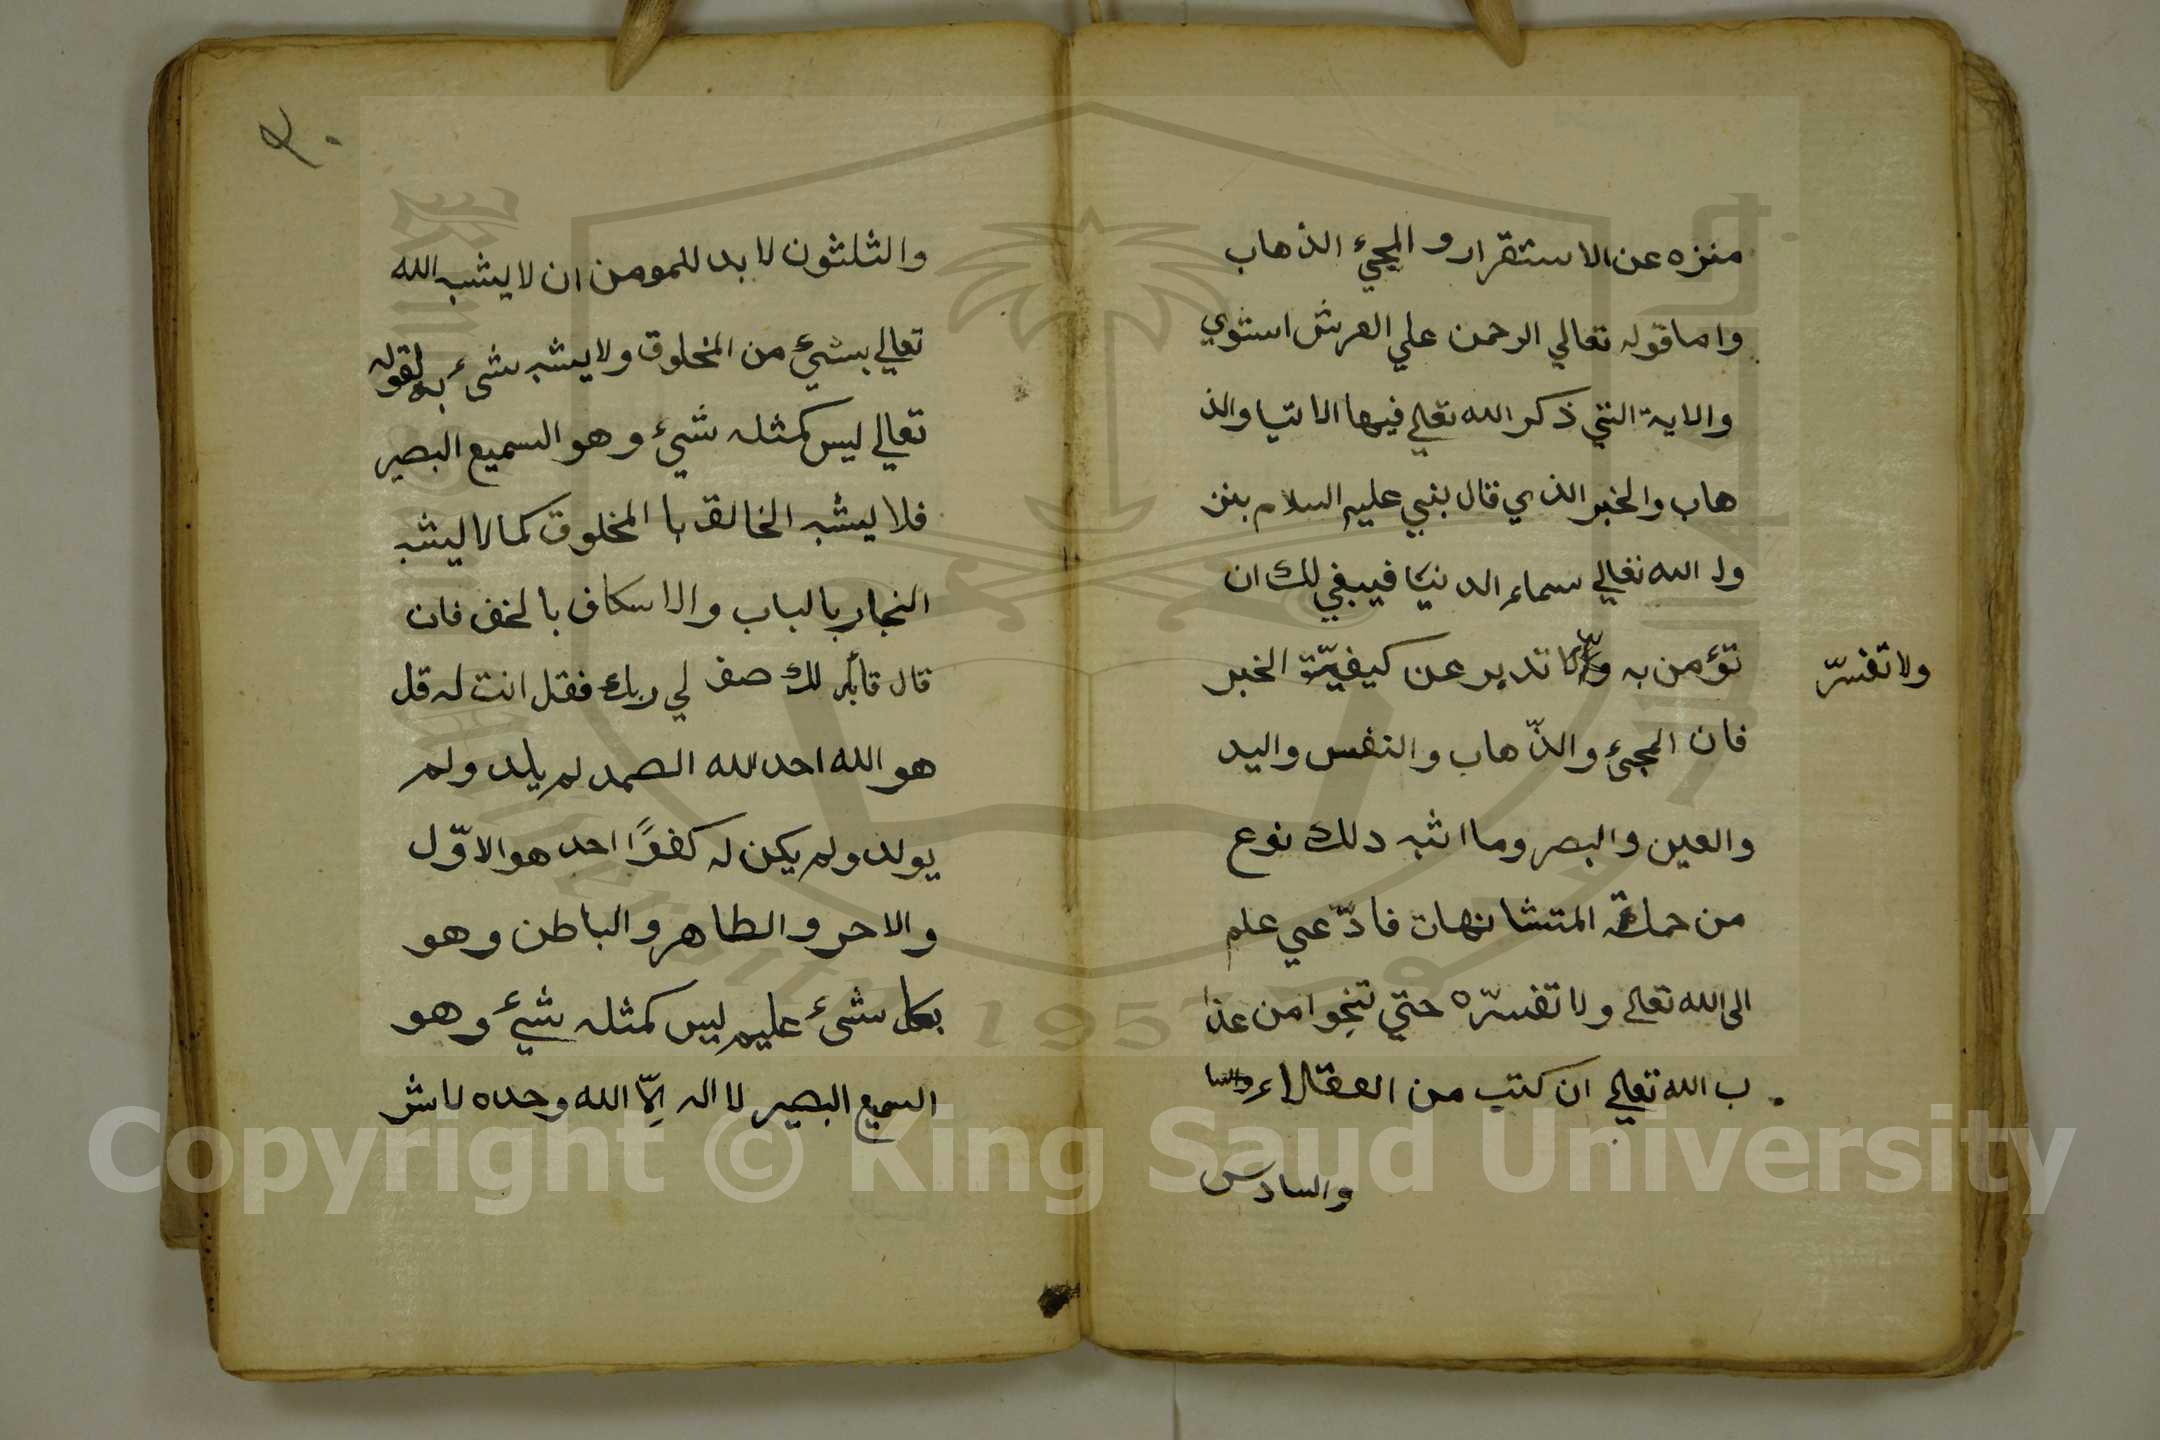 منزه عن الاستقرار و المجيء الذهاب
واما قوله تعالي الرحمن علي العرش استوي
والاية التي ذكر الله تعلي فيها الاتيا والذ
هاب والخبر الذي قال بنبي عليه السلام بنز
ول الله تعالي سماء الدنيا فيبغي لك ان
تؤمن به ولا تدبر عن كيفيّة الخبر
ولا تفسّر
فان المجئ والذّهاب والنفس واليد
والعين والبصر وما اشبه ذلك نوع
من جملة المتشابهات فادّعي علم
الى الله تعالي ولا تفسّره حتي تنجوا من عذا
ب الله تعلي ان كنت من العقلاء والسا
والسادس
٣٠
والثلثون لا بد للمومن ان لا يشبه الله
تعالي بشيئ من المخلوق ولا يشبه شيء به لقوله
تعالي ليس كمثله شيئ وهو السميع البصير
فلا يشبه الخالق با المخلوق كما لا ليشبه
النجار بالباب والاسكاف بالخف فان
قال قائل لك صف لي ربك فقل انت له قل
هو الله احد الله الصمد لم يلد ولم
يولد ولم يكن له كفوًا احد هو الاوّل
والاحر والطاهر والباطن وهو
بكل شيء عليم ليس كمثله شيئ وهو
السميع البصير لا اله الّا الله وحده لاشر
1957
Copyright © King Saud University